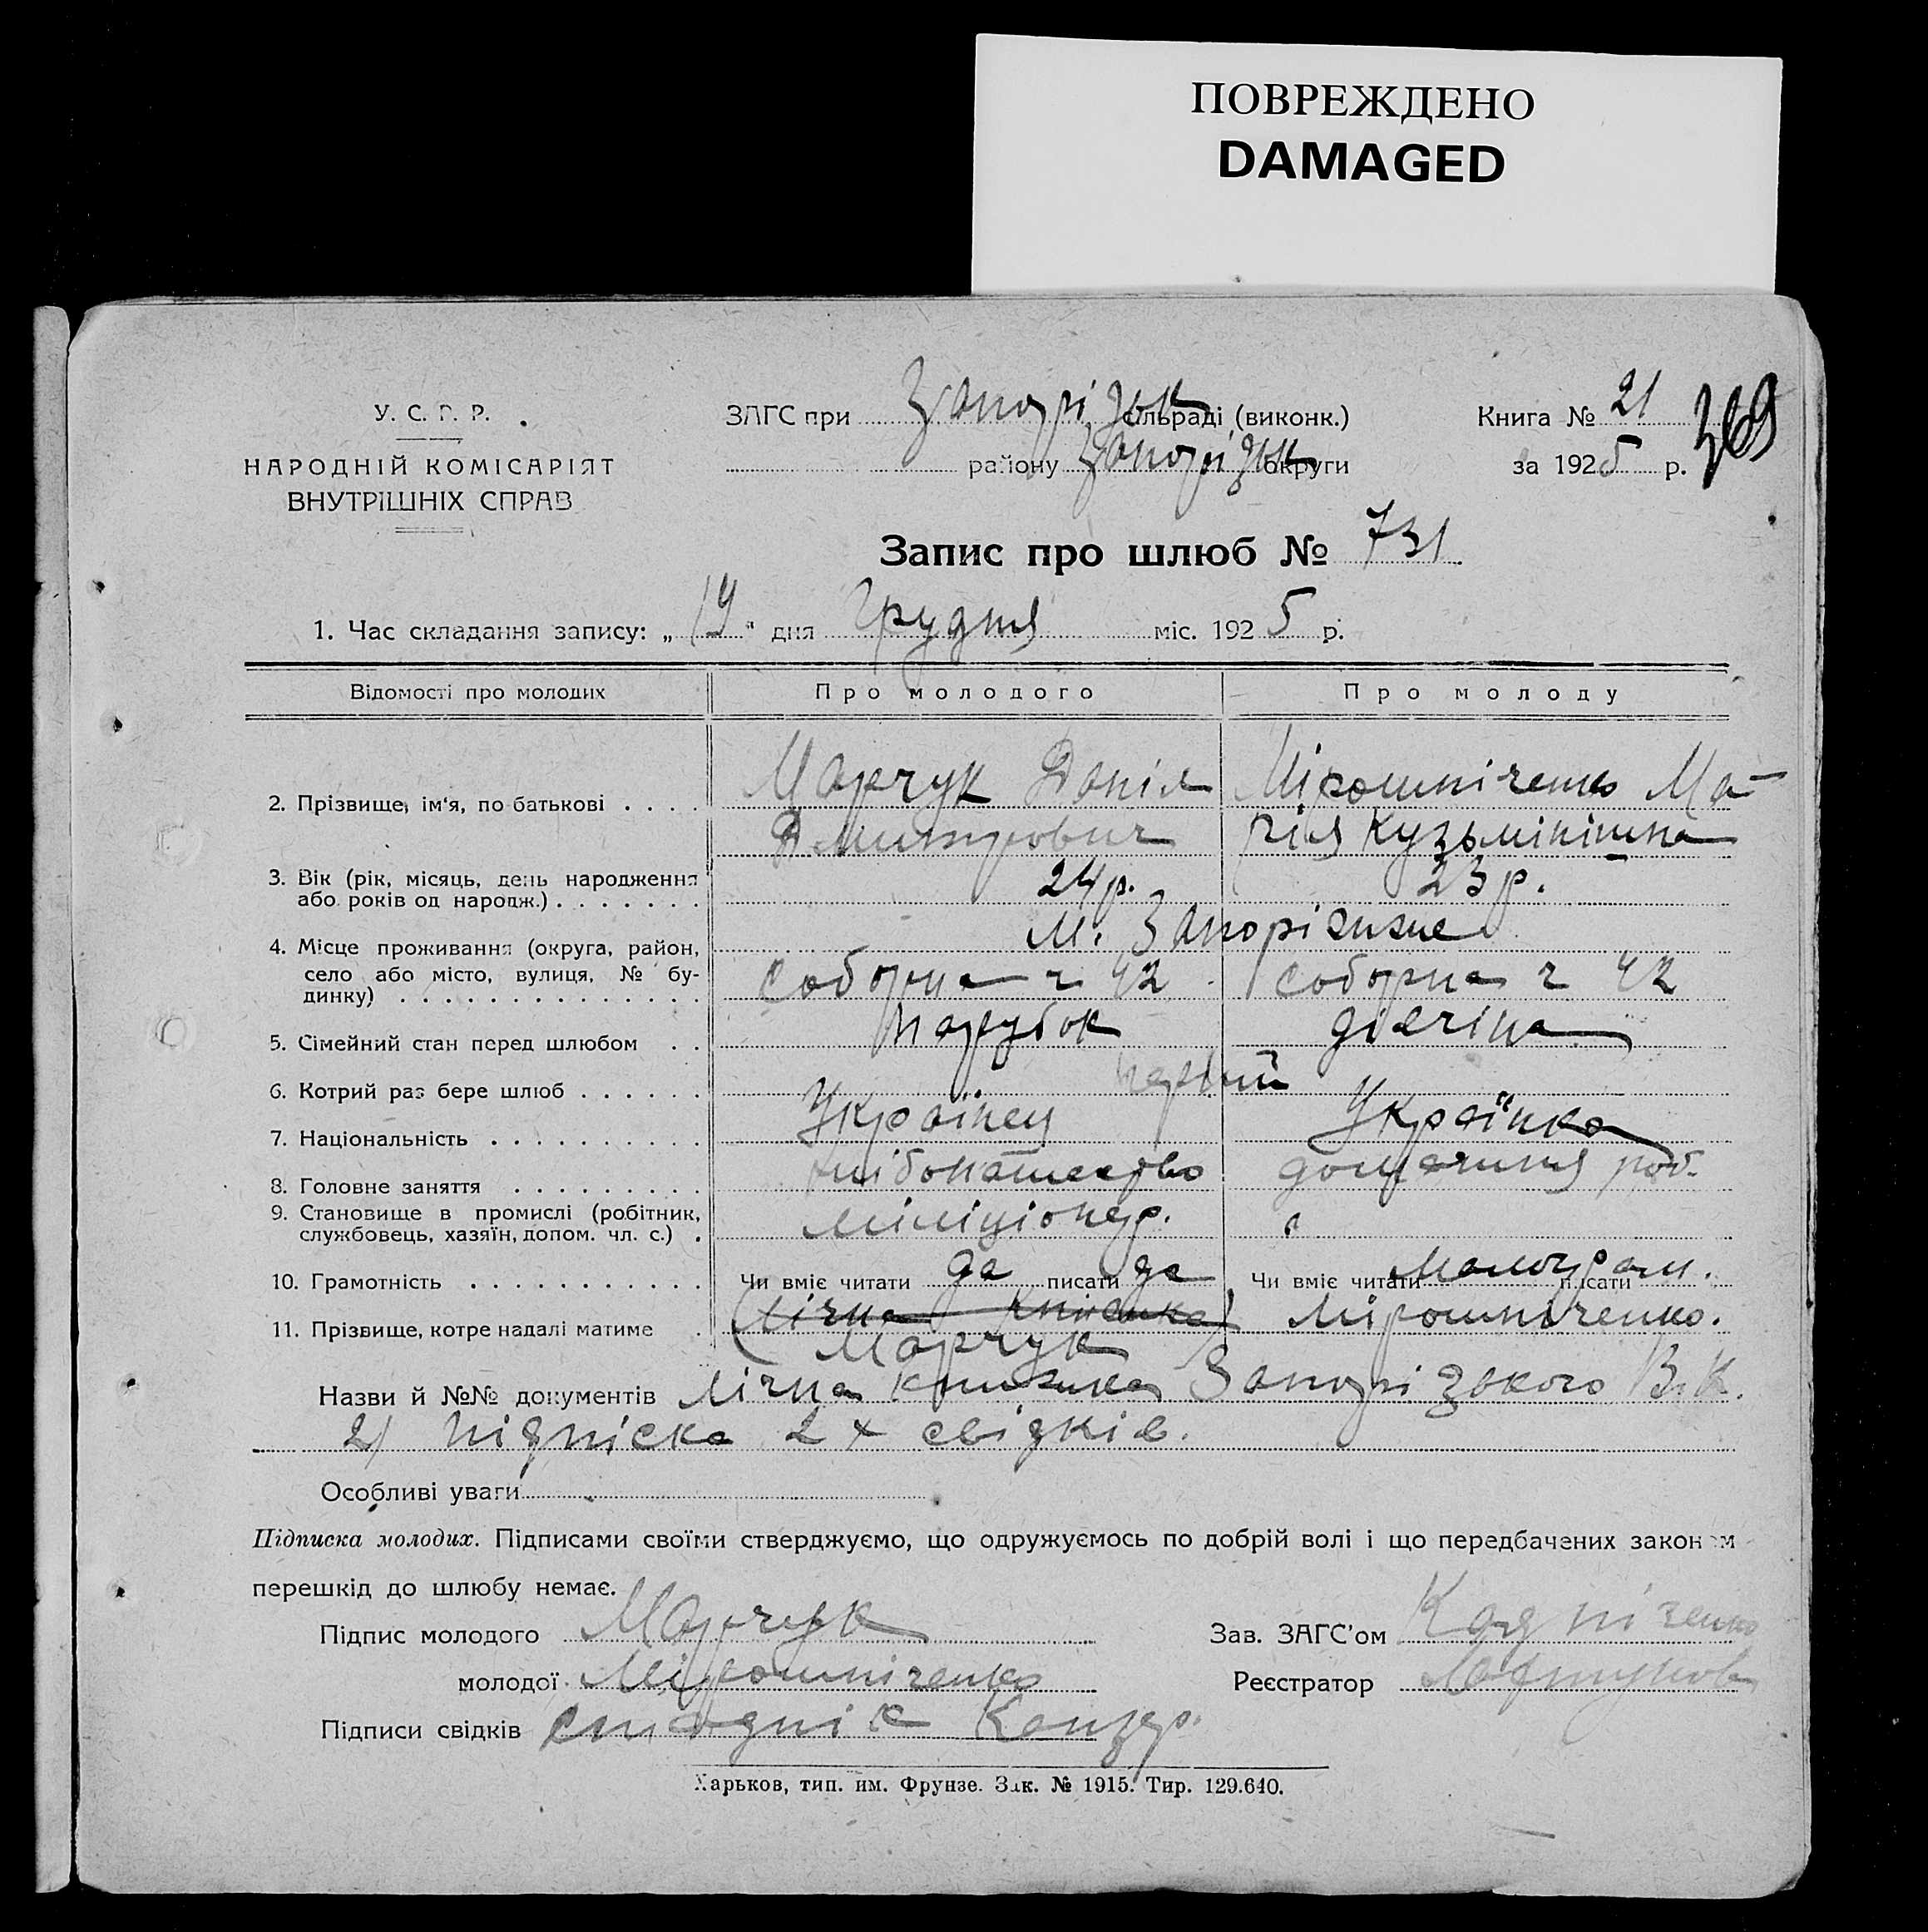 ПОВРЕЖДЕНО
DAMAGED
У. С. Р. Р.
НАРОДНІЙ КОМІСАРІЯТ
ВНУТРІШНІХ СПРАВ
ЗАГС при Запорізьк сільраді (виконк.)
району Запорізьк округи
Книга № 21 369
за 1925 р.
Запис про шлюб № 731
1. Час складання запису: „19“ дня Грудня міс. 1925 р.
Відомості про молодих Про молодого Про молоду
2. Прізвище, ім‘я, по-батькові . . . . Марчук Даніл Мірошніченко Ма-
Дмитрович рія Кузьмінішна
3. Вік (рік, місяць, день народження
або років од народж.) . . . . . . . 24 р. 23 р.
4. Місце проживання (округа, район, М. Запоріжже
село або місто, вулиця, № бу-
динку) . . . . . . . . . . . . . . Соборна ч 42 Соборна ч 42
5. Сімейний стан перед шлюбом . . Парубок дівчіна
6. Котрий раз бере шлюб . . . . . . перший
7. Національність . . . . . . . . . . Українец Українка
8. Головне заняття . . . . . . . . . домашня роб.
9. Становище в промислі (робітник,
службовець, хазяїн, допом. чл. с.) . міліціонер.
10. Грамотність . . . . . . . . . . . Чи вміє читати да писати да Чи вміє читати малограм. писати
11. Прізвище, котре надалі матиме . (Лічна книжка) Мірошніченко.
Марчук
Назви й №№ документів Лічна книжка Запорізького В.К.
2) Підпіска 2х свідків.
Особливі уваги
Підписка молодих. Підписами своїми стверджуємо, що одружуємось по добрій волі і що передбачених законом
перешкід до шлюбу немає.
Підпис молодого Марчук Зав. ЗАГС’ом
молодої Мірошніченко Реєстратор
Підписи свідків
Харьков, тип. им. Фрунзе. Зак. № 1915. Тир. 129.640.